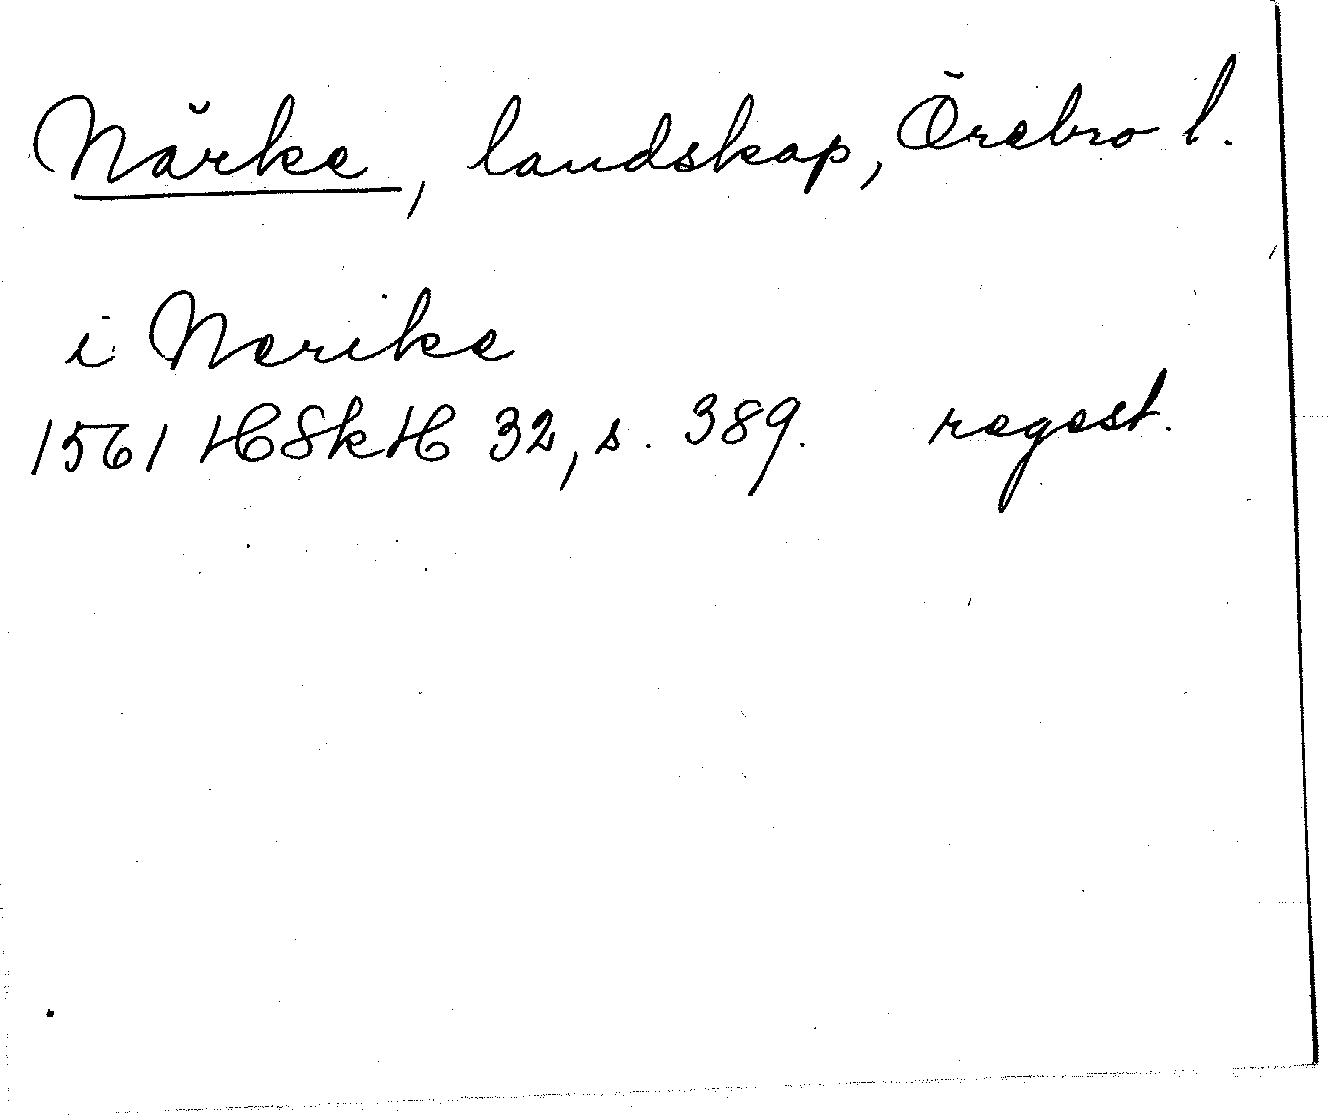 Närke, landskap, Örebro l.
i Nerike
1561 HSkH 32, s. 389. regest.